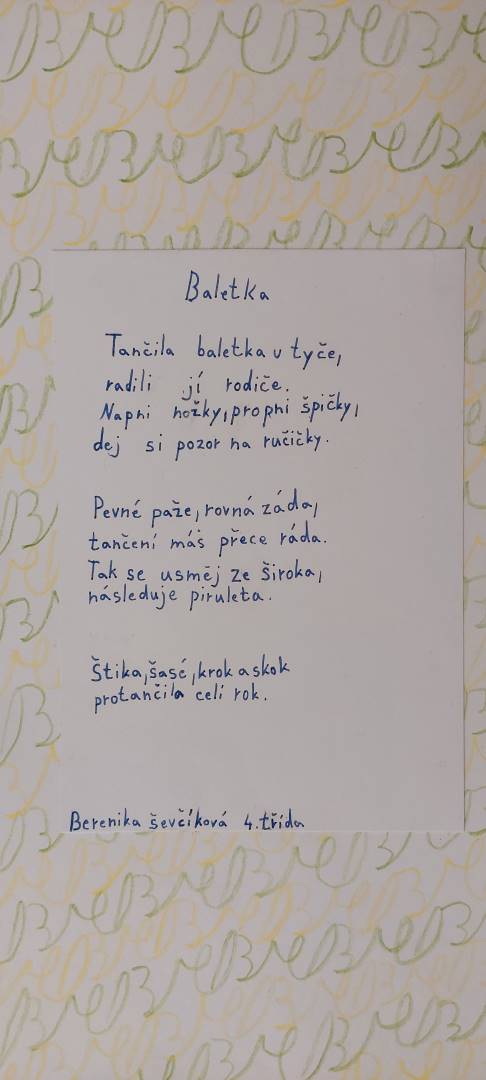 Baletka
Tančila baletka u tyče,
radili jí rodiče.
Napni nožky, propni špičky,
dej si pozor na ručičky.
Pevné paže, rovná záda,
tančení máš přece ráda.
Tak se usměj ze široka,
následuje piruleta.
Štika, šasé, krok a skok
protančila celí rok.
Berenika ševčíková 4. třída